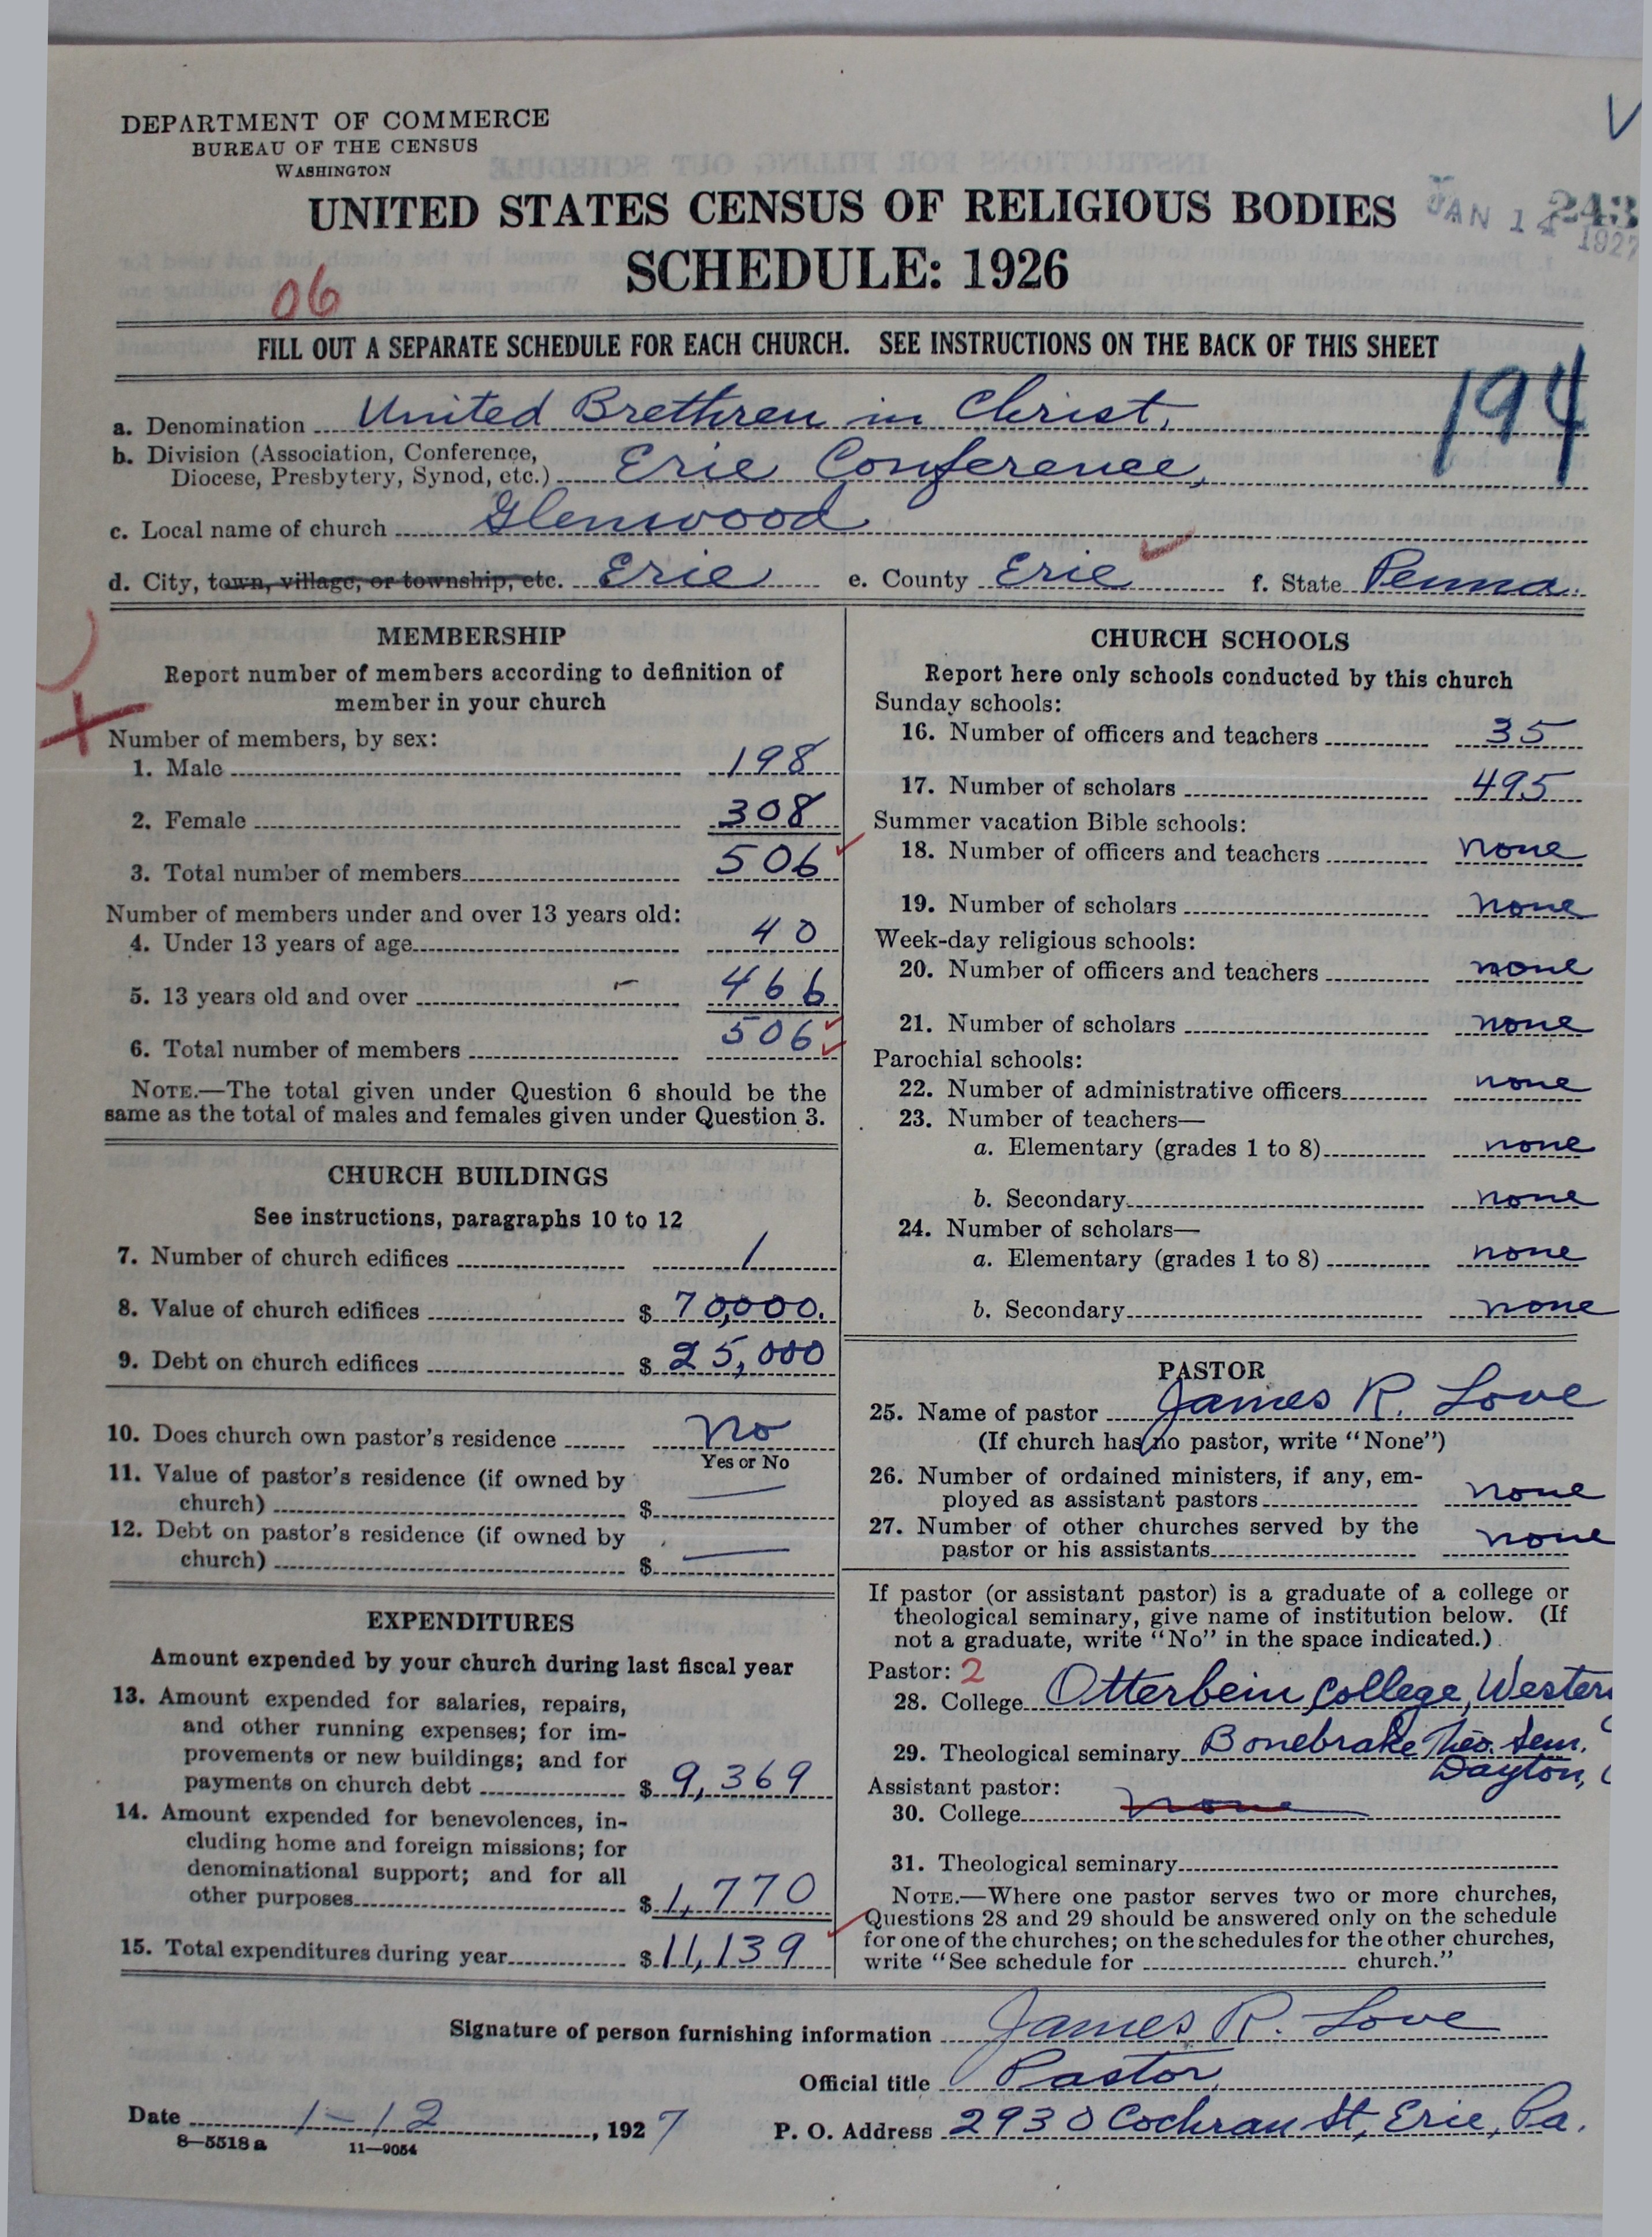 DEPARTMENT OF COMMERCE
BUREAU OF THE CENSUS
WASHINGTON
UNITED STATES CENSUS OF RELIGIOUS BODIES
SCHEDULE: 1926
JAN 14 1927
243
06
FILL OUT A SEPARATE SCHEDULE FOR EACH CHURCH. SEE INSTRUCTIONS ON THE BACK OF THIS SHEET
194
a. Denomination United Brethren in Christ,
b. Division (Association, Conference,
Diocese, Presbytery, Synod, etc.) Erie Conference,
c. Local name of church Glenwood
d. City, town, village, or township, etc. Erie e. County Erie f. State Penna.
MEMBERSHIP
Report number of members according to definition of
member in your church
Number of members, by sex:
1. Male 198
2. Female 308
3. Total number of members 506
Number of members under and over 13 years old:
4. Under 13 years of age 40
5. 13 years old and over 466
6. Total number of members 506
NOTE.—The total given under Question 6 should be the
same as the total of males and females given under Question 3.
CHURCH BUILDINGS
See instructions, paragraphs 10 to 12
7. Number of church edifices 1
8. Value of church edifices $ 70,000.
9. Debt on church edifices $ 25,000
10. Does church own pastor's residence No
Yes or No
11. Value of pastor's residence (if owned by
church) $ —
12. Debt on pastor's residence (if owned by
church) $ —
EXPENDITURES
Amount expended by your church during last fiscal year
13. Amount expended for salaries, repairs,
and other running expenses; for im-
provements or new buildings; and for
payments on church debt $ 9,369
14. Amount expended for benevolences, in-
cluding home and foreign missions; for
denominational support; and for all
other purposes $ 1,770
15. Total expenditures during year $ 11,139
CHURCH SCHOOLS
Report here only schools conducted by this church
Sunday schools:
16. Number of officers and teachers 35
17. Number of scholars 495
Summer vacation Bible schools:
18. Number of officers and teachers none
19. Number of scholars none
Week-day religious schools:
20. Number of officers and teachers none
21. Number of scholars none
Parochial schools:
22. Number of administrative officers none
23. Number of teachers—
a. Elementary (grades 1 to 8) none
b. Secondary none
24. Number of scholars—
a. Elementary (grades 1 to 8) none
b. Secondary none
PASTOR
25. Name of pastor James R. Love
(If church has no pastor, write "None")
26. Number of ordained ministers, if any, em-
ployed as assistant pastors none
27. Number of other churches served by the
pastor or his assistants none
If pastor (or assistant pastor) is a graduate of a college or
theological seminary, give name of institution below. (If
not a graduate, write "No" in the space indicated.)
Pastor: 2
28. College Otterbein College, Wester
29. Theological seminary Bonebrake Theo. Sem.
Dayton,
Assistant pastor:
30. College none
31. Theological seminary
NOTE.—Where one pastor serves two or more churches,
Questions 28 and 29 should be answered only on the schedule
for one of the churches; on the schedules for the other churches,
write "See schedule for church."
Signature of person furnishing information James R. Love
Official title Pastor,
Date 1-12, 1927 P. O. Address 2930 Cochran St, Erie, Pa.
8—5518 a 11—9054